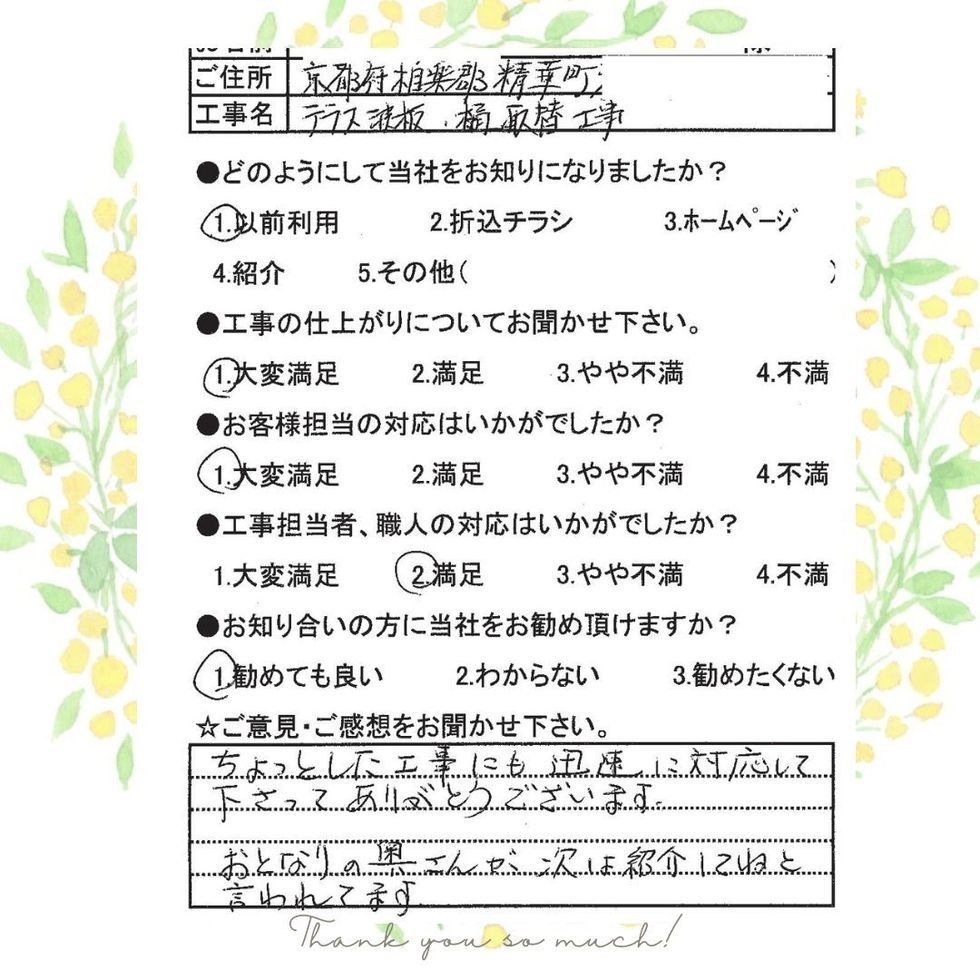 お名前 様
ご住所 京都府相楽郡精華町
工事名 テラス波板・樋取替工事
●どのようにして当社をお知りになりましたか？
1.以前利用 2.折込チラシ 3.ホームページ
4.紹介 5.その他( )
●工事の仕上がりについてお聞かせ下さい。
1.大変満足 2.満足 3.やや不満 4.不満
●お客様担当の対応はいかがでしたか？
1.大変満足 2.満足 3.やや不満 4.不満
●工事担当者、職人の対応はいかがでしたか？
1.大変満足 2.満足 3.やや不満 4.不満
●お知り合いの方に当社をお勧め頂けますか？
1.勧めても良い 2.わからない 3.勧めたくない
☆ご意見・ご感想をお聞かせ下さい。
ちょっとした工事にも迅速に対応して
下さってありがとうございます。
おとなりの奥さんが、次は紹介してねと
言われてます。
Thank you so much!